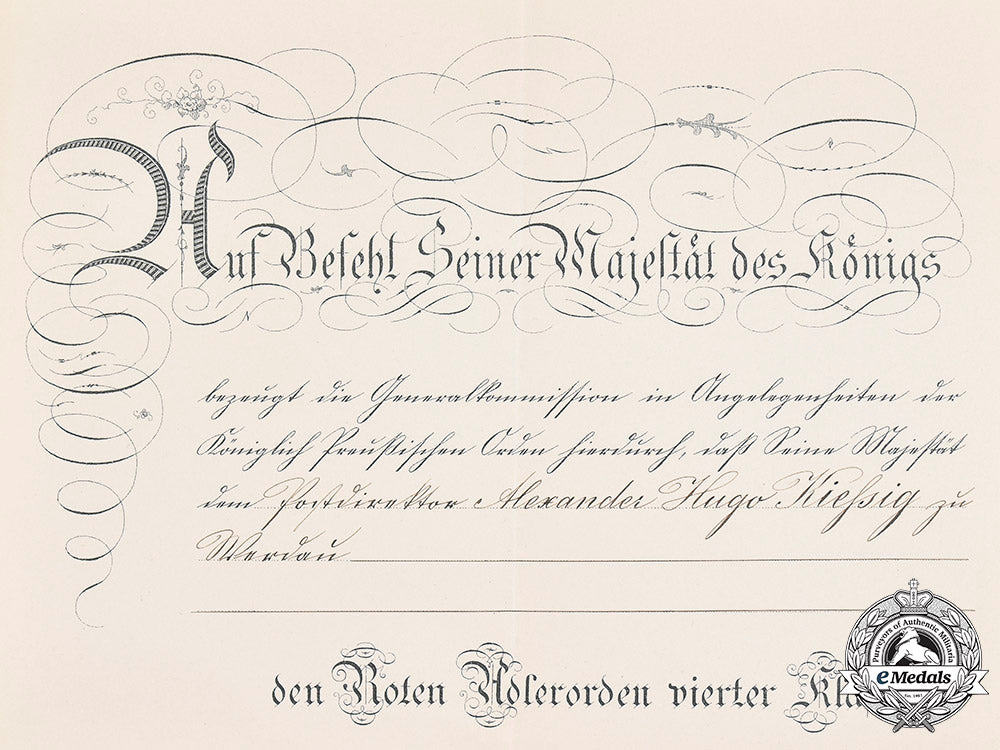 Auf Befehl Seiner Majestät des Königs
bezeugt die Generalkommission in Angelegenheiten der
Königlich Preußischen Orden hierdurch, daß Seine Majestät
dem Postdirektor Alexander Hugo Kießig zu
Werdau
den Roten Adlerorden vierter Kla
Purveyors of Authentic Militaria
eMedals